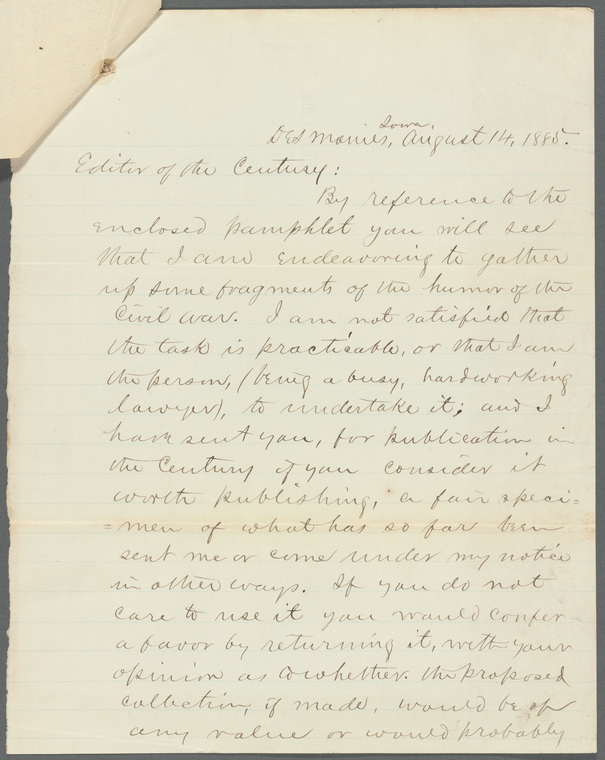 Des Moines, Iowa, August 14, 1885.
Editor of the Century:
By reference to the
enclosed pamphlet you will see
that I am endeavoring to gather
up some fragments of the humor of the
Civil War. I am not satisfied that
the task is practicable, or that I am
the person, (being a busy, hardworking
lawyer), to undertake it; and I
have sent you, for publication in
the Century if you consider it
worth publishing, a fair speci=
=men of what has so far been
sent me or come under my notice
in other ways. If you do not
care to use it you would confer
a favor by returning it, with your
opinion as to whether the proposed
collection, if made, would be of
any value or would probably